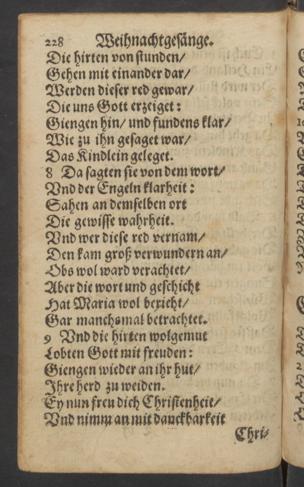 228 Weihnachtgesänge.
Die hirten von stunden/
Gehen mit einander dar/
Werden dieser red gewar/
Die uns Gott erzeiget:
Giengen hin/ und fundens klar/
Wie zu ihn gesaget war/
Das Kindlein geleget.
8 Da sagten sie von dem wort/
Vnd der Engeln klarheit:
Sahen an demselben ort
Die gewisse wahrheit.
Vnd wer diese red vernam/
Den kam groß verwundern an/
Obs wol ward verachtet/
Aber die wort und geschicht
Hat Maria wol bericht/
Gar manchsmal betrachtet.
9 Vnd die hirten wolgemut
Lobten Gott mit freuden:
Giengen wieder an ihr hut/
Ihre herd zu weiden.
Ey nun freu dich Christenheit/
Vnd nimm an mit danckbarkeit
Chri-